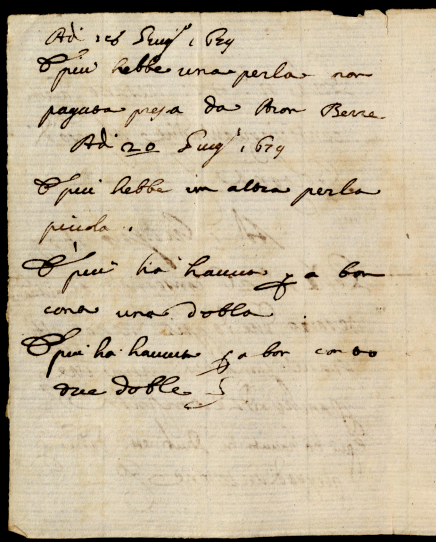 Adi 18 Lug.º 1659
E più hebbe una perla non
pagata presa da Bron Berre
Adi 20 Lug.º 1659
E più hebbe un altra perla
picola.
E più ha hauuto p a bon
conto una dobla
E più ha hauuto p a bon conto
due doble